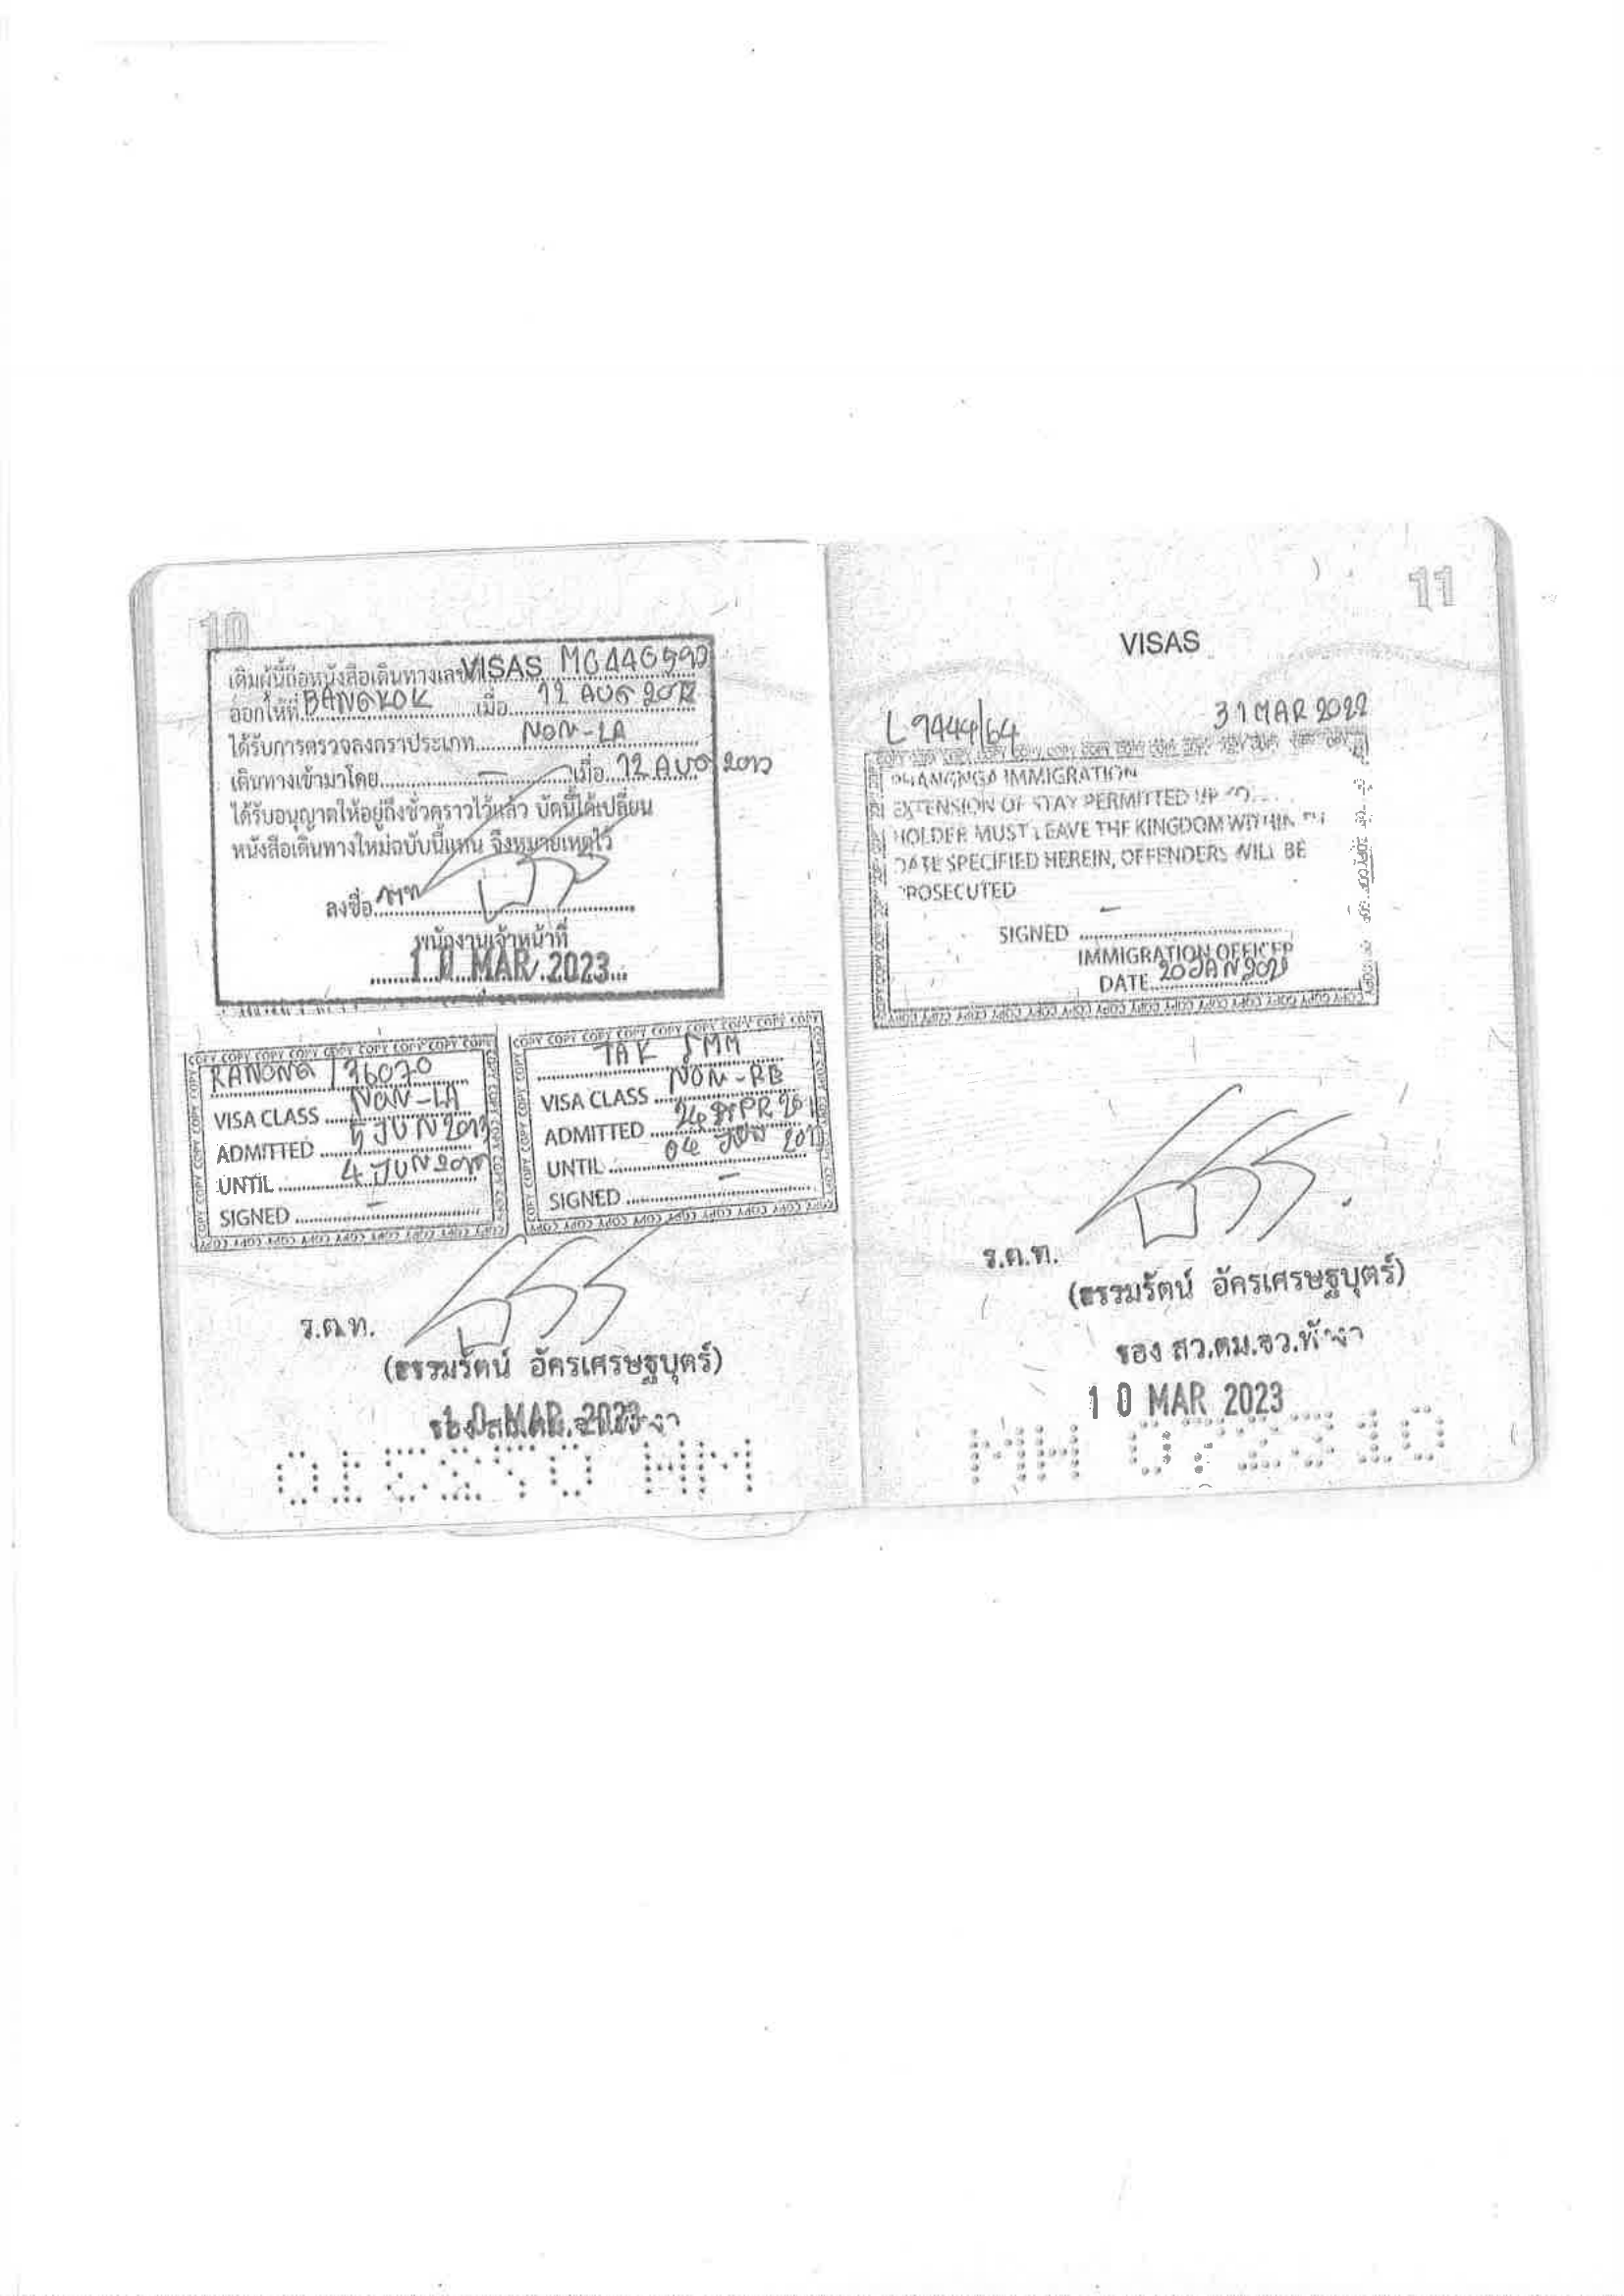 10
VISAS
เดิมผู้นี้ถือหนังสือเดินทางเลขที่ MC446590
ออกให้ที่ BANGKOK เมื่อ 12 AUG
ได้รับการตรวจลงตราประเภท NON-LA
เดินทางเข้ามาโดย - เมื่อ 12 AUG
ได้รับอนุญาตให้อยู่ถึงชั่วคราวไว้แล้ว บัดนี้ได้เปลี่ยน
หนังสือเดินทางใหม่ฉบับนี้แทน จึงหมายเหตุไว้
ลงชื่อ
พนักงานเจ้าหน้าที่
10 MAR 2023
COPY COPY COPY COPY COPY COPY COPY COPY COPY
RANONG
VISA CLASS NON-LA
ADMITTED 5 JUN
UNTIL 4 JUN
SIGNED -
COPY COPY COPY COPY COPY COPY COPY COPY COPY
TAK
VISA CLASS
ADMITTED
UNTIL
SIGNED -
ร.ต.ท.
(ธรรมรัตน์ อัครเศรษฐบุตร์)
10 MAR 2023
MM 072310
11
VISAS
L 9444/64 31 MAR 2022
PHANGNGA IMMIGRATION
EXTENSION OF STAY PERMITTED UP TO
HOLDER MUST LEAVE THE KINGDOM WITHIN
DATE SPECIFIED HEREIN, OFFENDERS WILL BE
PROSECUTED
SIGNED -
IMMIGRATION OFFICER
DATE 20 JAN
ร.ต.ท.
(ธรรมรัตน์ อัครเศรษฐบุตร์)
รอง สว.ตม.จว.พังงา
10 MAR 2023
MM 072310